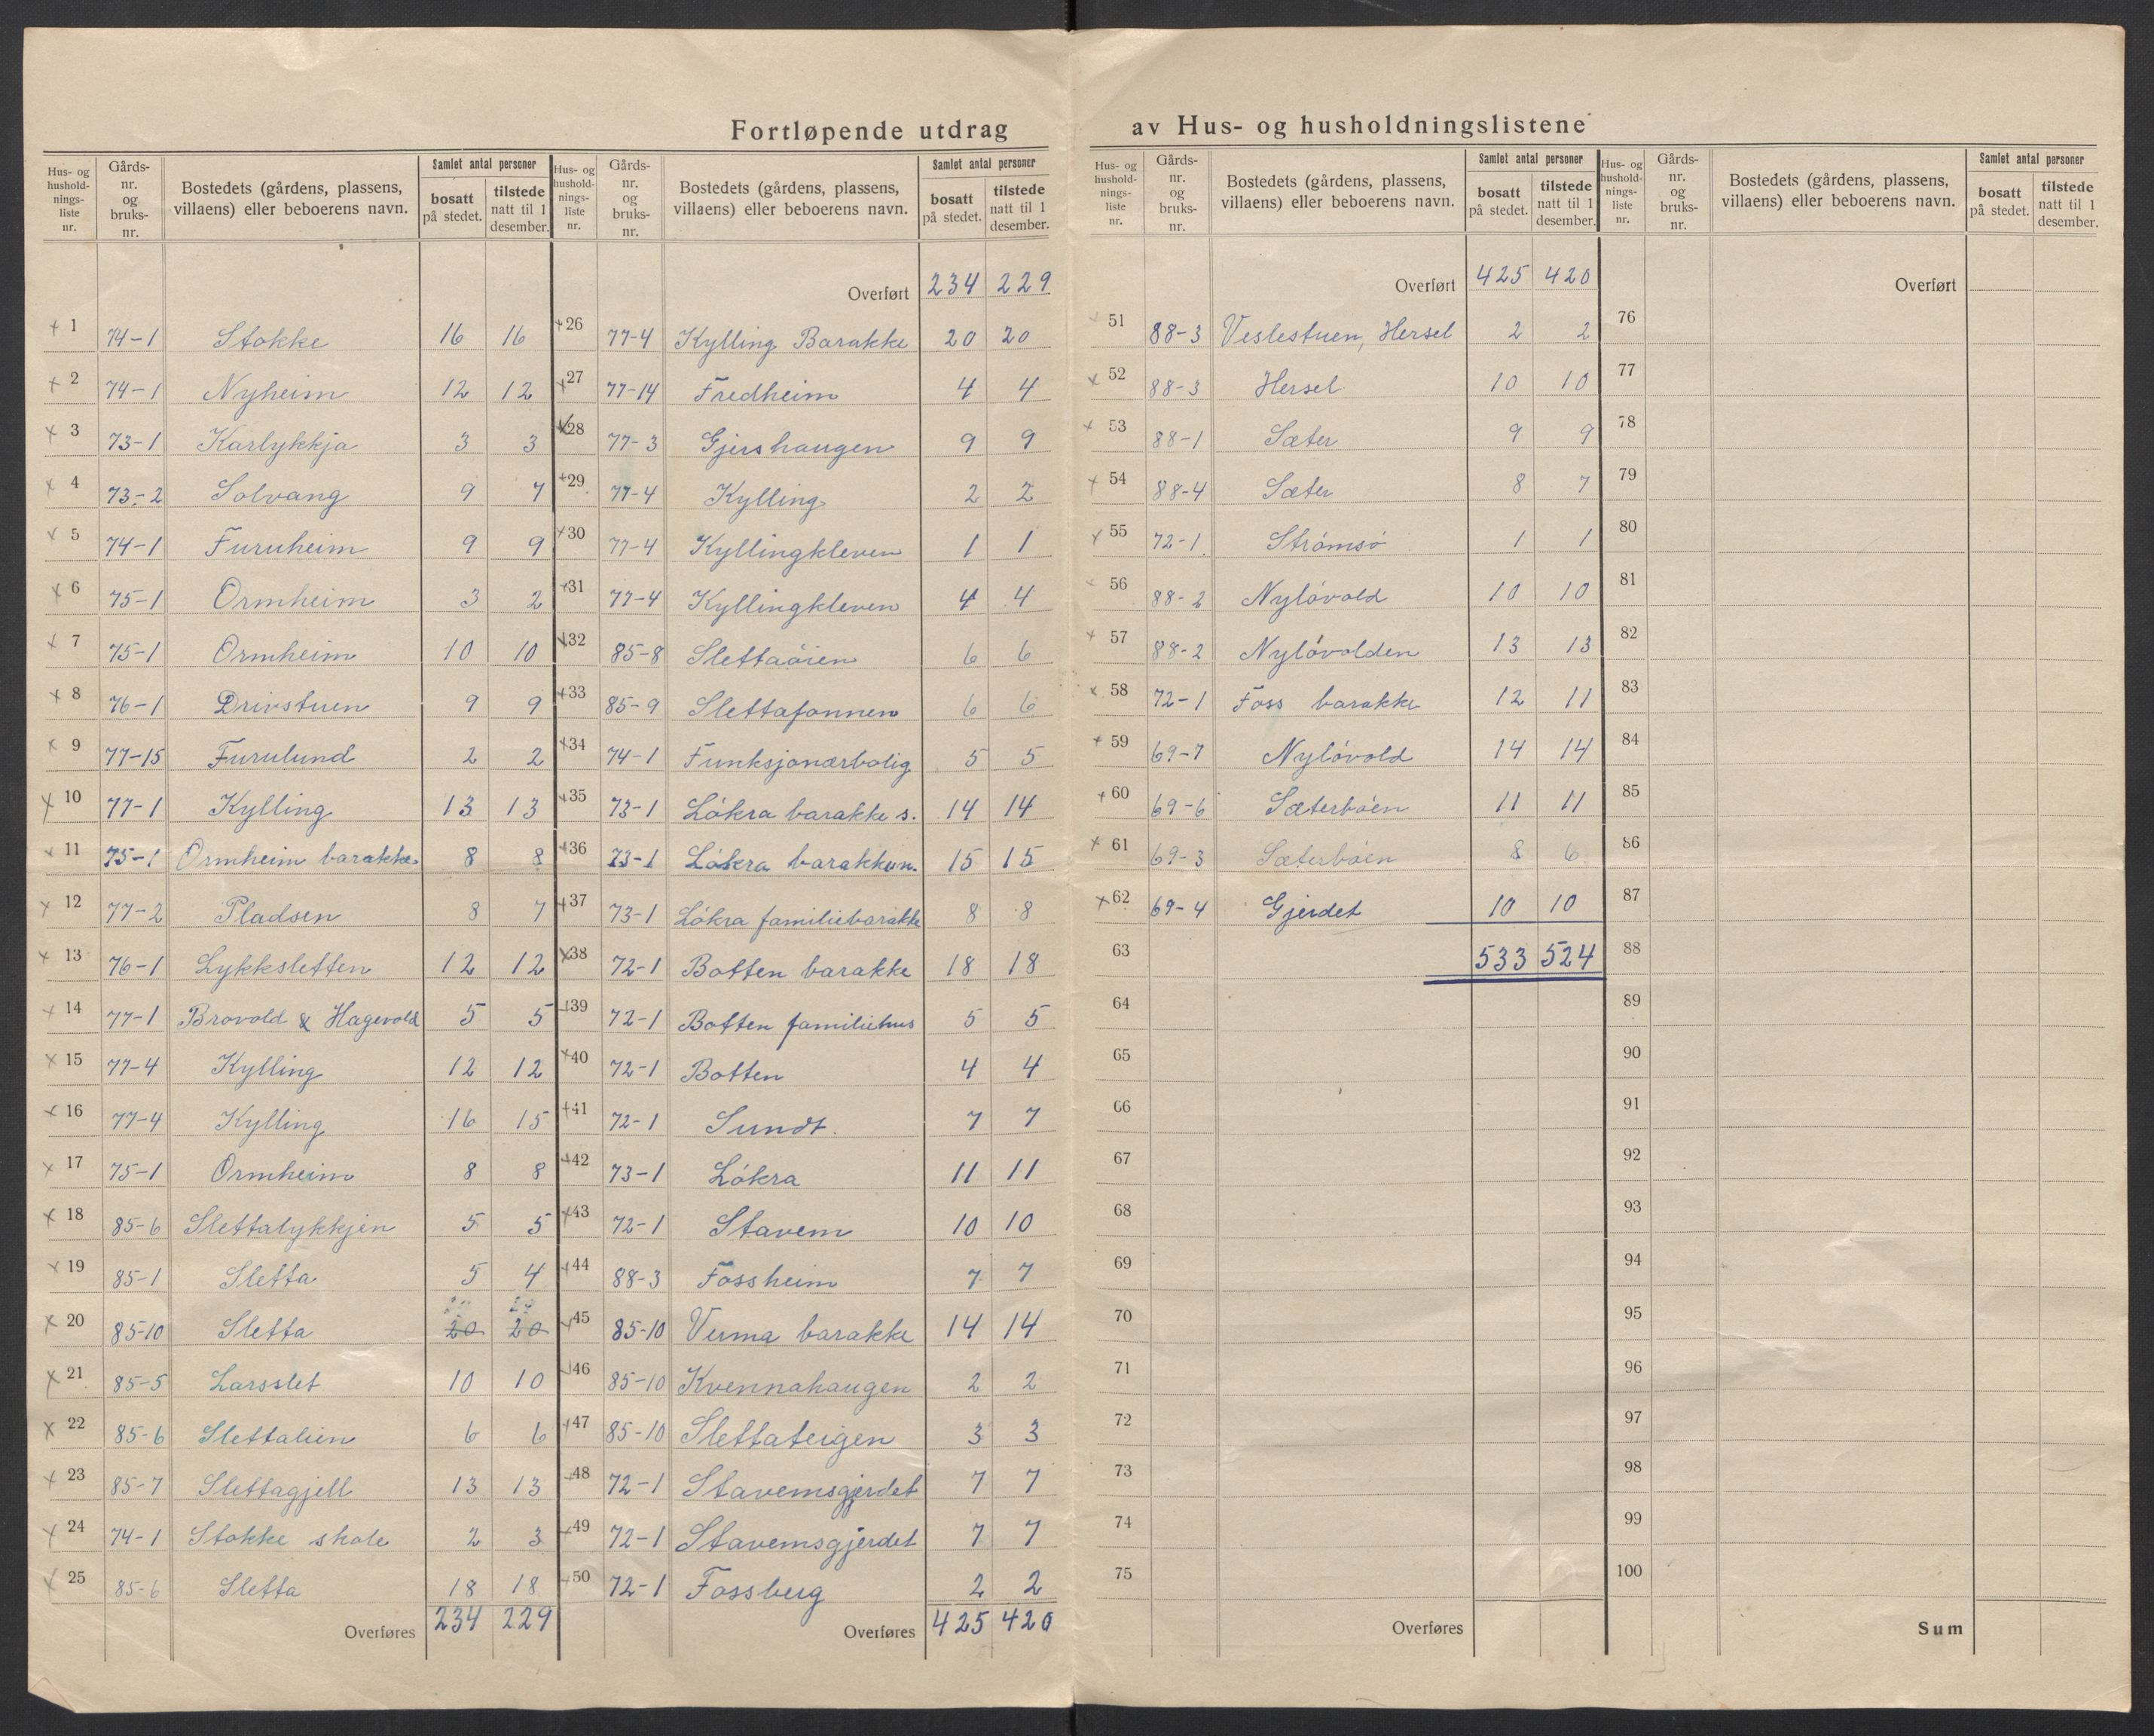 Fortløpende utdrag av Hus- og husholdningslistene
Hus- og hushold-nings-liste nr. Gårds-nr. og bruks-nr. Bostedets (gårdens, plassens, villaens) eller beboerens navn. Samlet antal personer bosatt på stedet. tilstede natt til 1 desember.
1 74-1 Stokke 16 16
2 74-1 Nyheim 12 12
3 73-1 Karlykkja 3 3
4 73-2 Solvang 9 7
5 74-1 Furuheim 9 9
6 75-1 Ormheim 3 2
7 75-1 Ormheim 10 10
8 76-1 Drivstuen 9 9
9 77-15 Furulund 2 2
10 77-1 Kylling 13 13
11 75-1 Ormheim barakke 8 8
12 77-2 Pladsen 8 7
13 76-1 Lykksletten 12 12
14 77-1 Brovold & Hagevold 5 5
15 77-4 Kylling 12 12
16 77-4 Kylling 16 15
17 75-1 Ormheim 8 8
18 85-6 Slettalykkjen 5 5
19 85-1 Sletta 5 4
20 85-10 Sletta 20 20
21 85-5 Larsslet 10 10
22 85-6 Slettalien 6 6
23 85-7 Slettagjell 13 13
24 74-1 Stokke skole 2 3
25 85-6 Sletta 18 18
Overføres 234 229
Hus- og hushold-nings-liste nr. Gårds-nr. og bruks-nr. Bostedets (gårdens, plassens, villaens) eller beboerens navn. Samlet antal personer bosatt på stedet. tilstede natt til 1 desember.
Overført 234 229
26 77-4 Kylling Barakke 20 20
27 77-14 Fredheim 4 4
28 77-3 Gjershaugen 9 9
29 77-4 Kylling 2 2
30 77-4 Kyllingkleven 1 1
31 77-4 Kyllingkleven 4 4
32 85-8 Slettaöien 6 6
33 85-9 Slettafonnen 6 6
34 74-1 Funksjonærbolig 5 5
35 73-1 Lökra barakke s. 14 14
36 73-1 Lökra barakke n. 15 15
37 73-1 Lökra familiebarakke 8 8
38 72-1 Botten barakke 18 18
39 72-1 Botten familiehus 5 5
40 72-1 Botten 4 4
41 72-1 Sundt. 7 7
42 73-1 Lökra 11 11
43 72-1 Stavem 10 10
44 88-3 Fossheim 7 7
45 85-10 Verma barakke 14 14
46 85-10 Kvennahaugen 2 2
47 85-10 Slettateigen 3 3
48 72-1 Stavemsgjerdet 7 7
49 72-1 Stavemsgjerdet 7 7
50 72-1 Fossberg 2 2
Overføres 425 420
Hus- og hushold-nings-liste nr. Gårds-nr. og bruks-nr. Bostedets (gårdens, plassens, villaens) eller beboerens navn. Samlet antal personer bosatt på stedet. tilstede natt til 1 desember.
Overført 425 420
51 88-3 Veslestuen, Hersel 2 2
52 88-3 Hersel 10 10
53 88-1 Sæter 9 9
54 88-4 Sæter 8 7
55 72-1 Strömsö 1 1
56 88-2 Nylövold 10 10
57 88-2 Nylövolden 13 13
58 72-1 Foss barakke 12 11
59 69-7 Nylövold 14 14
60 69-6 Sæterböen 11 11
61 69-3 Sæterböen 8 6
62 69-4 Gjerdet 10 10
63 533 524
64
65
66
67
68
69
70
71
72
73
74
75
Overføres
Hus- og hushold-nings-liste nr. Gårds-nr. og bruks-nr. Bostedets (gårdens, plassens, villaens) eller beboerens navn. Samlet antal personer bosatt på stedet. tilstede natt til 1 desember.
Overført
76
77
78
79
80
81
82
83
84
85
86
87
88
89
90
91
92
93
94
95
96
97
98
99
100
Sum